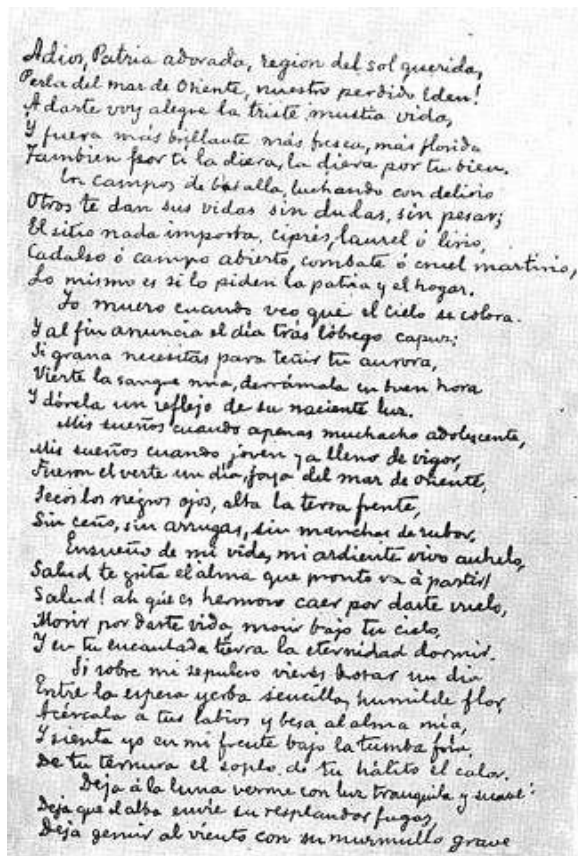 Adios, Patria adorada, region del sol querida,
Perla del mar de Oriente, nuestro perdido Eden!
A darte voy alegre la triste mustia vida,
Y fuera más brillante más fresca, más florida
Tambien por ti la diera, la diera por tu bien.
En campos de batalla, luchando con delirio
Otros te dan sus vidas sin dudas, sin pesar;
El sitio nada importa, ciprés, laurel ó lirio,
Cadalso ó campo abierto, combate ó cruel martirio,
Lo mismo es si lo piden la patria y el hogar.
Yo muero cuando veo que el cielo se colora.
Y al fin anuncia el día trás lóbrego capuz;
Si grana necesitas para teñir tu aurora,
Vierte la sangre mia, derrámala en buen hora
Y dórela un reflejo de su naciente luz.
Mis sueños cuando apenas muchacho adolescente,
Mis sueños cuando joven ya lleno de vigor,
Fueron el verte un dia, joya del mar de oriente,
Secos los negros ojos, alta la tersa frente,
Sin ceño, sin arrugas, sin manchas de rubor,
Ensueño de mi vida, mi ardiente vivo anhelo,
Salud te grita el alma que pronto va á partir!
Salud! ah que es hermoso caer por darte vuelo,
Morir por darte vida, morir bajo tu cielo,
Y en tu encantada tierra la eternidad dormir.
Si sobre mi sepulcro vieres brotar un dia
Entre la espesa yerba sencilla, humilde flor,
Acércala a tus labios y besa al alma mia,
Y sienta yo en mi frente bajo la tumba fria,
De tu ternura el soplo, de tu hálito el calor.
Deja á la luna verme con luz tranquila y suave:
Deja que el alba envie su resplandor fugaz,
Deja gemir al viento con su murmullo grave